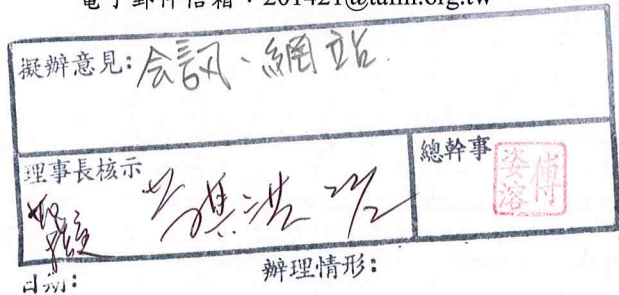 電子郵件信箱：201421@taiffi.org.tw
擬辦意見：会訊、網站
理事長核示
總幹事
傅姿溶
日期：
辦理情形：